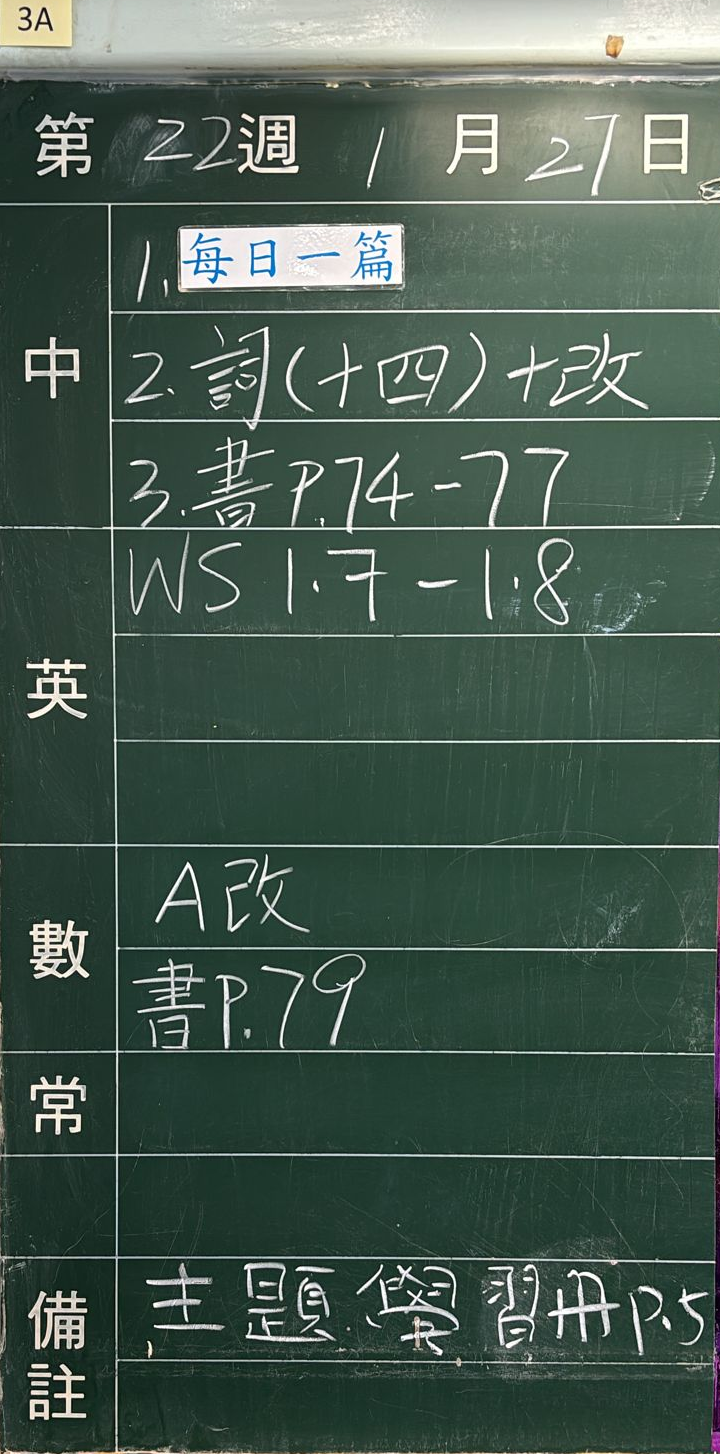 3A
第 22 週 1 月 27 日
中
1. 每日一篇
2. 詞(十四)+改
3. 書P.74-77
英
WS 1.7-1.8
數
A改
書P.79
常
備註
主題學習冊P.5